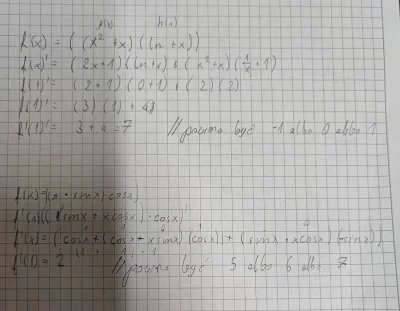 g(x) h(x)
f(x) = ((x² + x)(ln + x))
f(x)' = (2x+1)(ln+x) + (x²+x)(1/x + 1)
f(1)' = (2+1)(0+1) + (2)(2)
f(1)' = (3)(1) + 4
f'(1)' = 3 + 4 = 7 // powinno być -1 albo 0 albo 1
f(x) = (x · sinx) · cosx)
f'(x)((sinx + xcosx) · cosx)'
f'(x) = (cosx + (cosx + xsinx)(cosx) + (sinx + xcosx)(-sinx))
f'(1) = 2 // powinno być 5 albo 6 albo 7